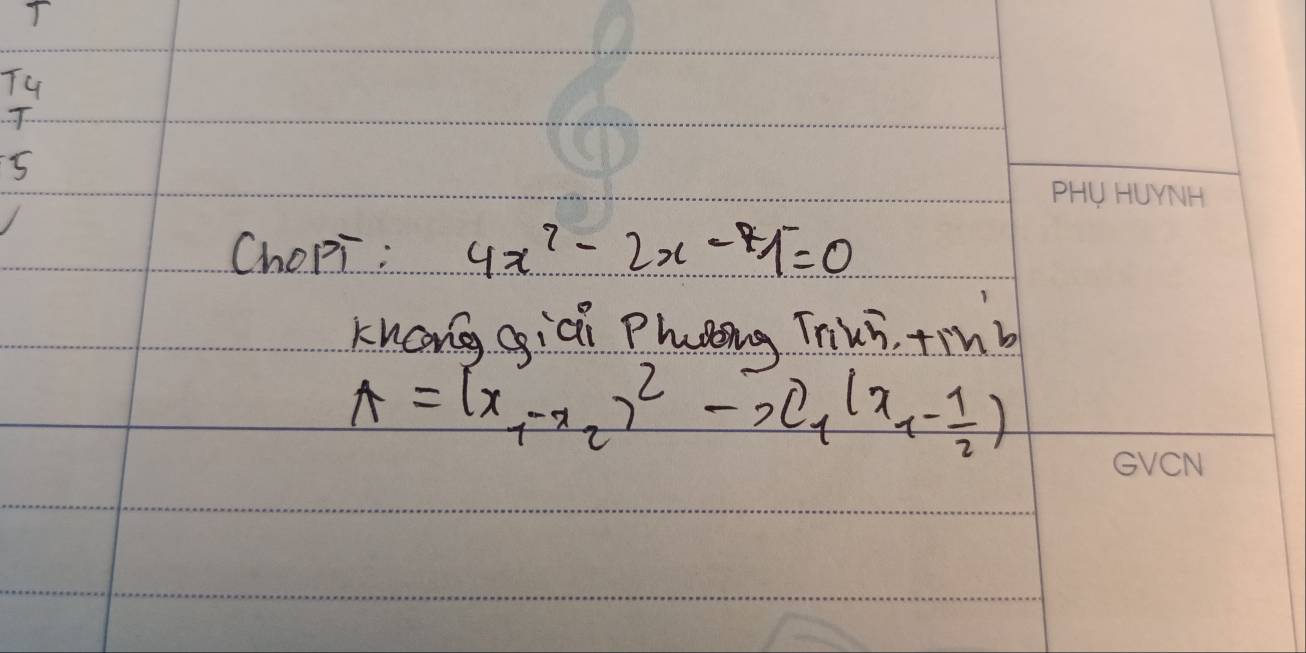 T
T4
T
5
PHỤ HUYNH
Cho PT: 4x² - 2x - 1 = 0
không giải Phương Trình. tính
A = (x₁ - x₂)² - x₁(x₁ - 1/2)
GVCN